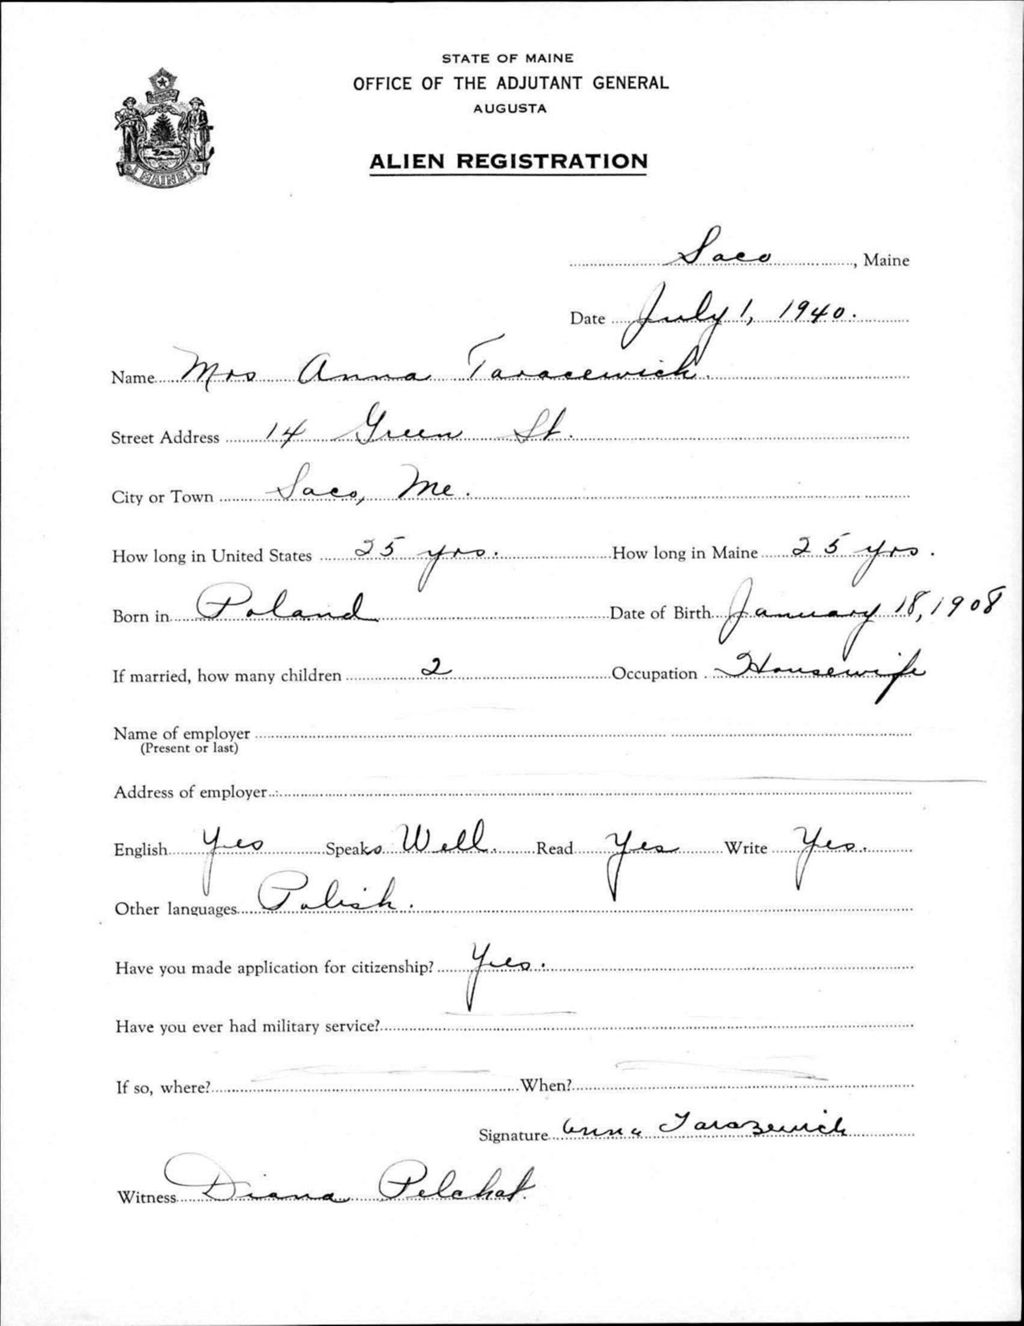 STATE OF MAINE
OFFICE OF THE ADJUTANT GENERAL
AUGUSTA
MAINE
ALIEN REGISTRATION
Saco, Maine
Date July 1, 1940.
Name Mrs Anna Taracewich.
Street Address 14 Green St.
City or Town Saco, Me.
How long in United States 25 yrs. How long in Maine 25 yrs.
Born in Poland Date of Birth January 18, 1908
If married, how many children 2 Occupation Housewife
Name of employer
(Present or last)
Address of employer
English Yes Speak Well. Read Yes Write Yes.
Other languages Polish.
Have you made application for citizenship? Yes.
Have you ever had military service?
If so, where? When?
Signature Anna Tarazewich
Witness Diana Pelchat.